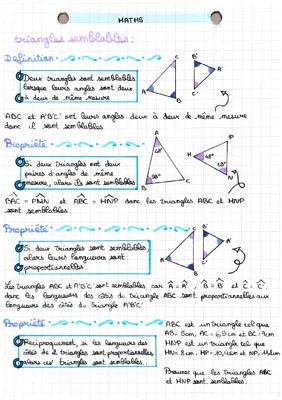 MATHS
triangles semblables :
Définition
Deux triangles sont semblables
lorsque leurs angles sont deux
à deux de même mesure
A
B
C
B'
A'
C'
ABC et A'B'C' ont leurs angles deux à deux de même mesure
donc il sont semblables
Propriété
Si deux triangles ont deux
paires d'angles de même
mesure, alors ils sont semblables
A
48°
58°
B
C
P
H
48°
58°
N
BAC = PMN et ABC = HNP donc les triangles ABC et HNP
sont semblables.
Propriété
Si deux triangles sont semblables,
alors leurs longueurs sont
proportionnelles.
A
B
C
B'
A'
C'
Les triangles ABC et A'B'C' sont semblables car Â = Â', B̂ = B̂' et Ĉ = Ĉ',
donc les longueurs des côtés du triangle ABC sont proportionnelles aux
longueurs des côtés du triangle A'B'C'
Propriété
Réciproquement, si les longueurs des
côtés de 2 triangles sont proportionnelles
alors ces triangles sont semblables.
ABC est un triangle tel que
AB = 5cm, AC = 6,3cm et BC = 7cm
HNP est un triangle tel que
HN = 8cm, HP = 10,12cm et NP = 11,2cm
Prouvez que les triangles ABC
et HNP sont semblables.